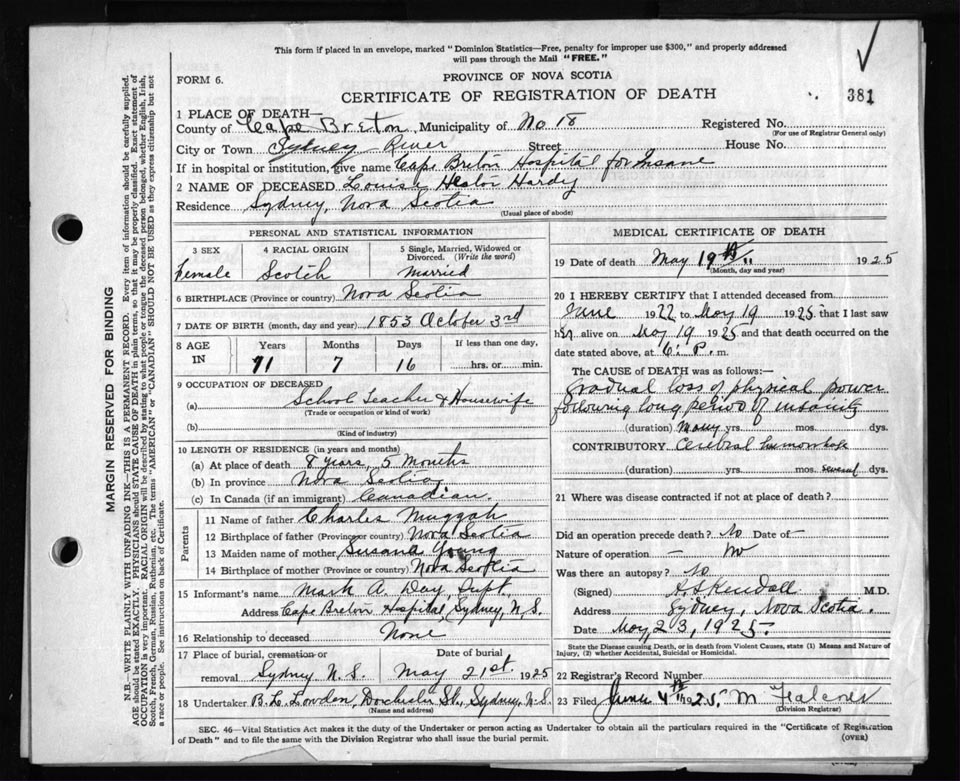 This form if placed in an envelope, marked "Dominion Statistics—Free, penalty for improper use $300," and properly addressed
will pass through the Mail "FREE."
FORM 6.
PROVINCE OF NOVA SCOTIA
CERTIFICATE OF REGISTRATION OF DEATH
381
1 PLACE OF DEATH—
County of Cape Breton, Municipality of No 18 Registered No.
(For use of Registrar General only)
City or Town Sydney River Street House No.
If in hospital or institution, give name Cape Breton Hospital for Insane
2 NAME OF DECEASED Louise Hester Hardy
Residence Sydney, Nova Scotia
(Usual place of abode)
PERSONAL AND STATISTICAL INFORMATION
3 SEX 4 RACIAL ORIGIN 5 Single, Married, Widowed or
Divorced. (Write the word)
Female Scotch Married
6 BIRTHPLACE (Province or country) Nova Scotia
7 DATE OF BIRTH (month, day and year) 1853 October 3rd
8 AGE IN Years Months Days If less than one day,
71 7 16 hrs. or min.
9 OCCUPATION OF DECEASED
(a) School Teacher & Housewife
(Trade or occupation or kind of work)
(b)
(Kind of industry)
10 LENGTH OF RESIDENCE (in years and months)
(a) At place of death 8 years, 5 Months
(b) In province Nova Scotia
(c) In Canada (if an immigrant) Canadian.
Parents
11 Name of father Charles Muggah
12 Birthplace of father (Province or country) Nova Scotia
13 Maiden name of mother Susana Young
14 Birthplace of mother (Province or country) Nova Scotia
15 Informant's name Mark A. Day, Supt.
Address Cape Breton Hospital, Sydney, N.S.
16 Relationship to deceased None
17 Place of burial, cremation or Date of burial
removal Sydney N.S. May 21st. 1925
18 Undertaker B. L. Lowden, Dorchester St., Sydney, N.S.
(Name and address)
MEDICAL CERTIFICATE OF DEATH
19 Date of death May 19th 1925
(Month, day and year)
20 I HEREBY CERTIFY that I attended deceased from
June 1922 to May 19 1925 that I last saw
her alive on May 19 1925 and that death occurred on
date stated above, at 6: P. m.
The CAUSE of DEATH was as follows:
Gradual loss of physical power
following long period of insanity
(duration) Many yrs. mos. dys.
CONTRIBUTORY Cerebral hemorrhage
(duration) yrs. mos. several dys.
21 Where was disease contracted if not at place of death?
Did an operation precede death? No Date of —
Nature of operation — No
Was there an autopsy? No
(Signed) Kendall M.D.
Address Sydney, Nova Scotia.
Date May 23, 1925.
State the Disease causing Death, or in death from Violent Causes, state (1) Means and Nature of
Injury, (2) whether Accidental, Suicidal or Homicidal.
22 Registrar's Record Number
23 Filed June 4th 1925. M
(Division Registrar)
SEC. 46—Vital Statistics Act makes it the duty of the Undertaker or person acting as Undertaker to obtain all the particulars required in the "Certificate of Registration
of Death" and to file the same with the Division Registrar who shall issue the burial permit.
(OVER)
MARGIN RESERVED FOR BINDING
N.B.—WRITE PLAINLY WITH UNFADING INK—THIS IS A PERMANENT RECORD. Every item of information should be carefully supplied.
AGE should be stated EXACTLY. PHYSICIANS should STATE CAUSE OF DEATH in plain terms, so that it may be properly classified. Exact statement of
OCCUPATION is very important. RACIAL ORIGIN will be described by stating to what people or tongue the deceased person belonged, whether English, Irish,
Scotch, French, German, Russian, Ruthenian, etc. The terms "AMERICAN" or "CANADIAN" SHOULD NOT BE USED as they express citizenship but not
a race or people. See instructions on back of Certificate.